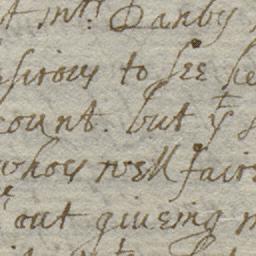 t mrs Danby
sirous to see he
count. but yt s
whos well faire
out giueing m